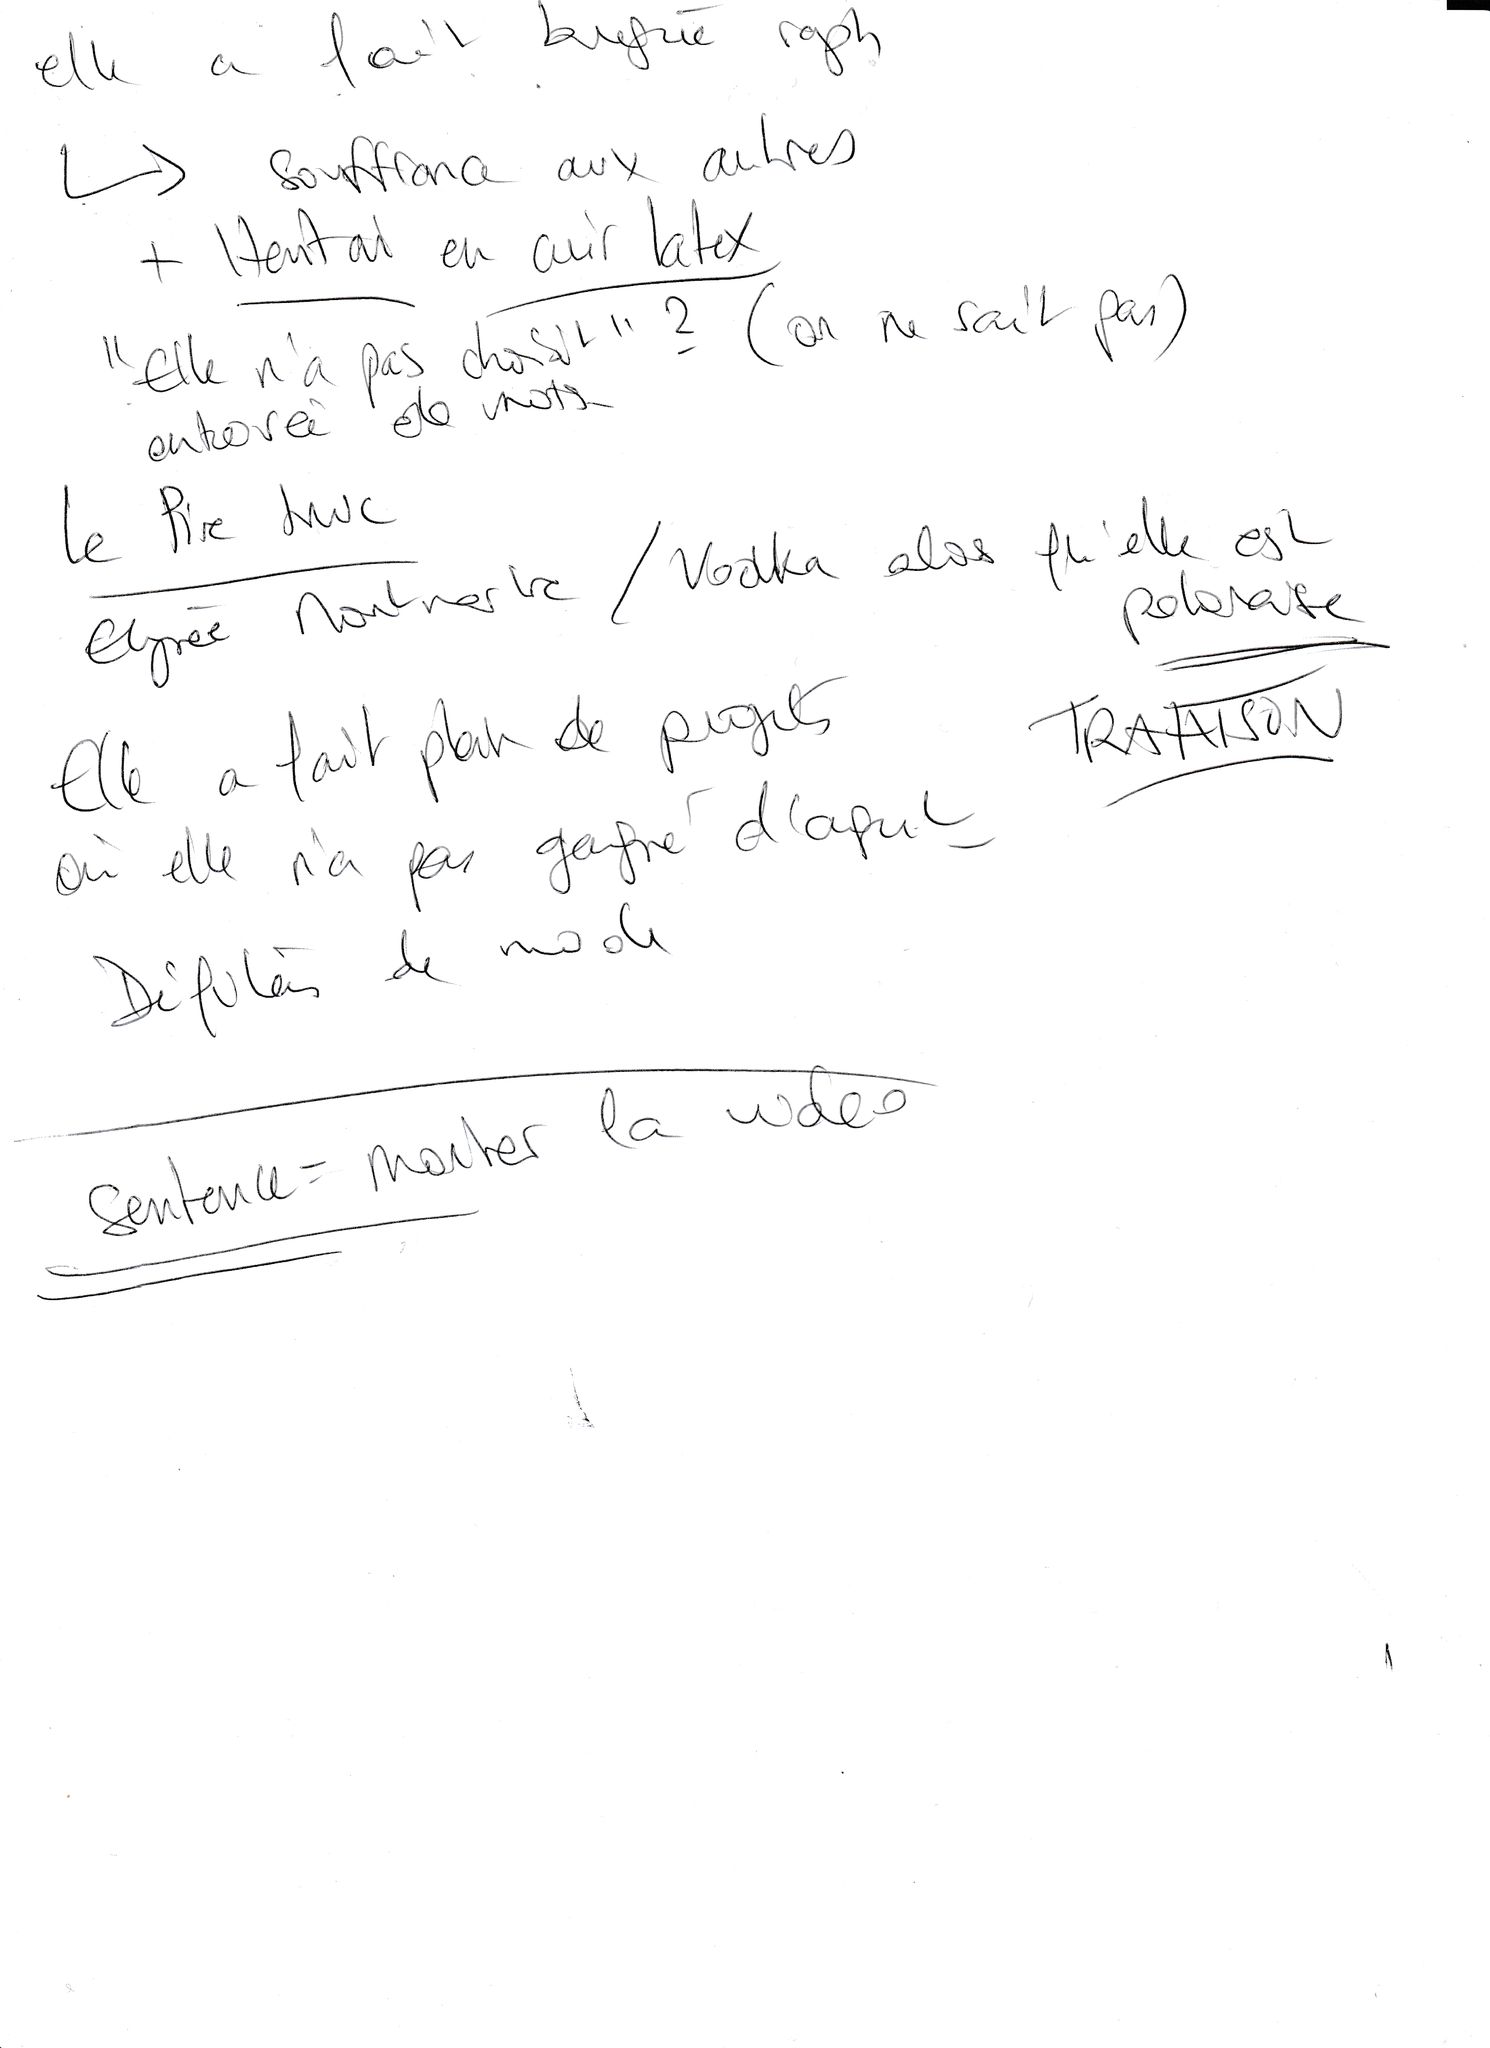 elle a fait
souffrance aux autres
+ Hentai en cuir latex
"Elle n'a pas choisit" ? (on ne sait pas)
de mots
Le Pire truc
Elysée Montmartre / Vodka alors qu'elle est
polonaise
TRAHISON
Elle a fait plein de projets
où elle n'a pas gagné d'argent
Défilés de mode
Sentence = monter la video